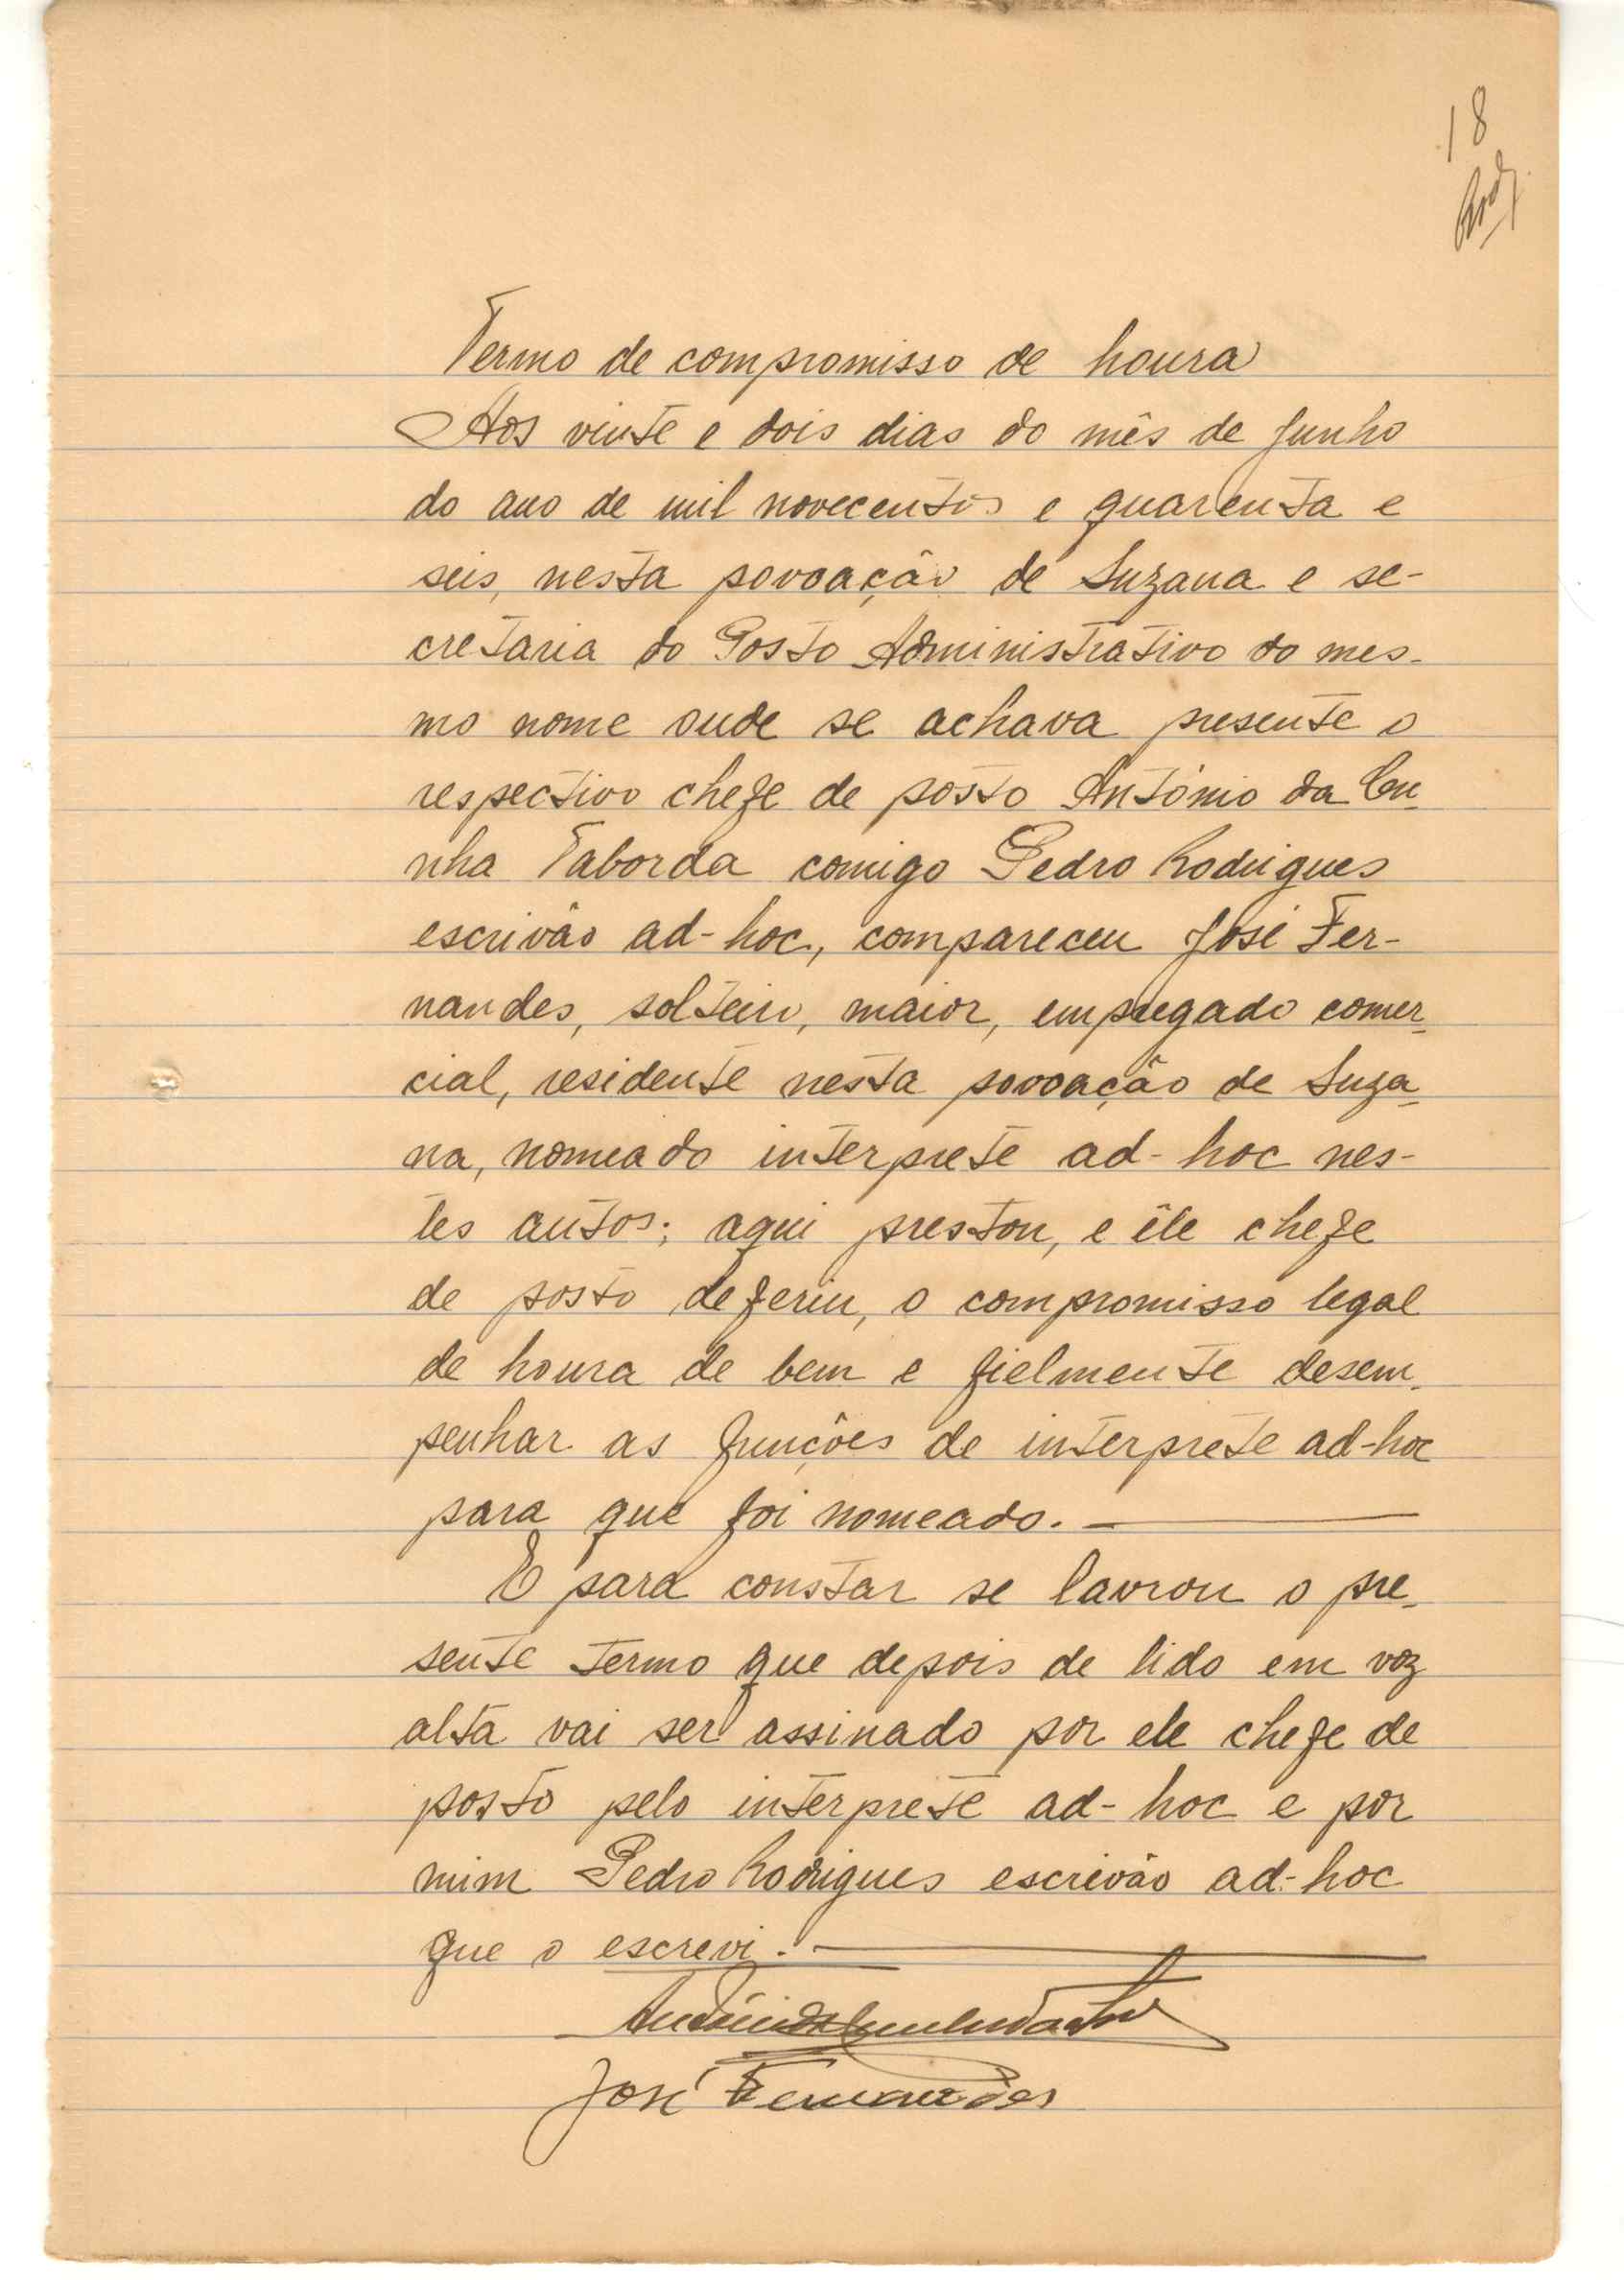 18
Rodz.
Termo de compromisso de honra
Aos vinte e dois dias do mês de Junho
do ano de mil novecentos e quarenta e
seis, nesta povoação de Suzana e se-
cretaria do Posto Administrativo do mes-
mo nome onde se achava presente o
respectivo chefe de posto António da Cu-
nha Taborda comigo Pedro Rodrigues
escrivão ad-hoc, compareceu José Fer-
nandes, solteiro, maior, empregado comer-
cial, residente nesta povoação de Suza-
na, nomeado interprete ad-hoc nes-
tes autos; aqui prestou, e êle chefe
de posto deferiu, o compromisso legal
de honra de bem e fielmente desem-
penhar as funções de interprete ad-hoc
para que foi nomeado.
E para constar se lavrou o pre-
sente termo que depois de lido em voz
alta vai ser assinado por ele chefe de
posto pelo interprete ad-hoc e por
mim Pedro Rodrigues escrivão ad-hoc
que o escrevi.
José Fernandes